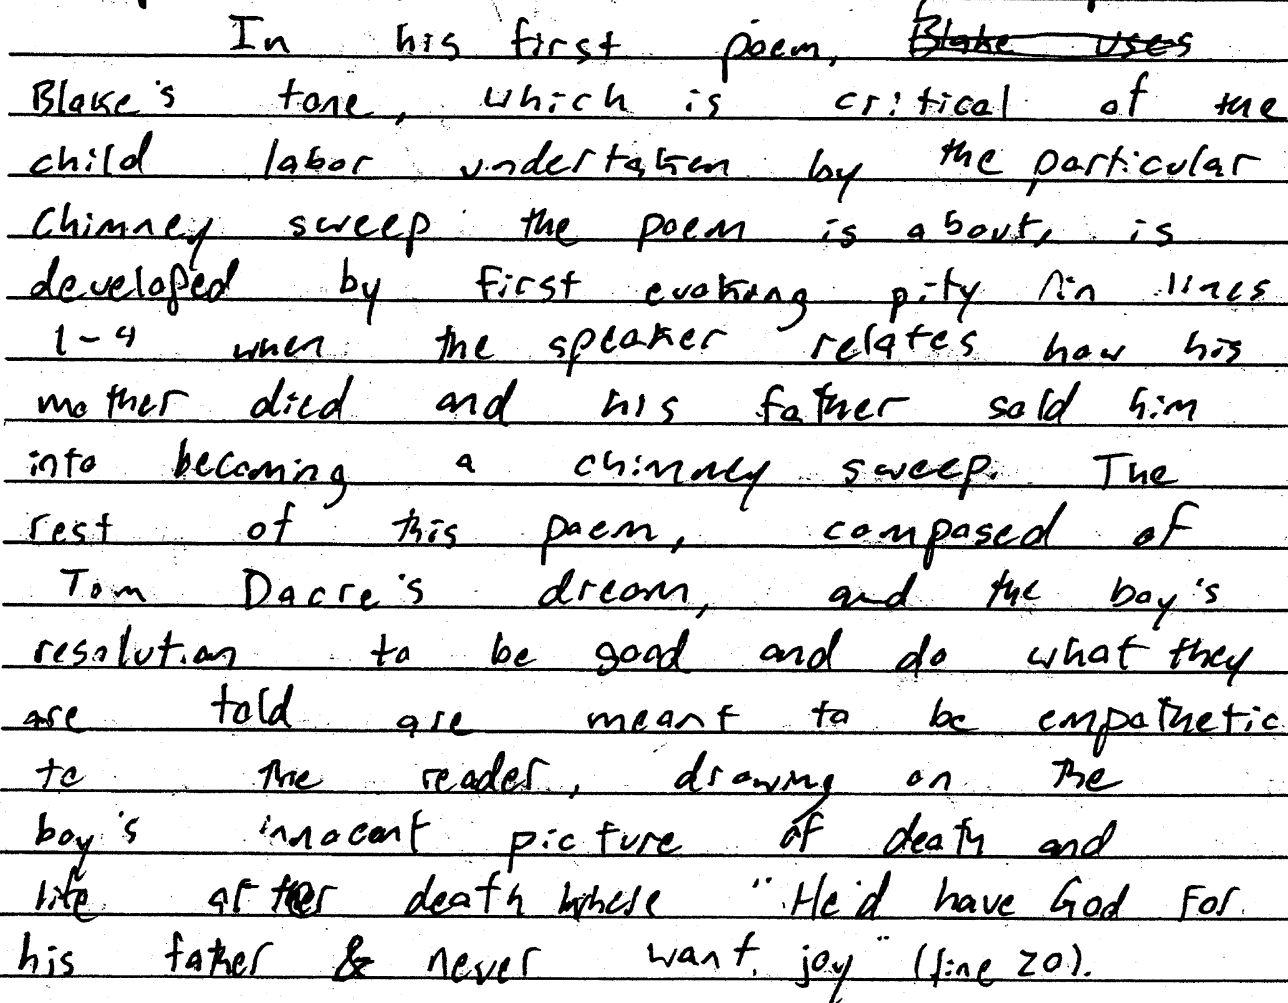 In his first poem, Blake uses
Blake's tone, which is critical of the
child labor undertaken by the particular
chimney sweep the poem is about, is
developed by first evoking pity in lines
1-4 when the speaker relates how his
mother died and his father sold him
into becoming a chimney sweep. The
rest of this poem, composed of
Tom Dacre's dream, and the boy's
resolution to be good and do what they
are told are meant to be empathetic
to the reader, drawing on the
boy's innocent picture of death and
life after death where "He'd have God for
his father & never want joy" (line 20).